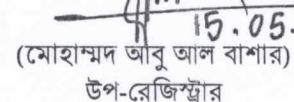 15.05.
(মোহাম্মদ আবু আল বাশার)
উপ-রেজিস্ট্রার